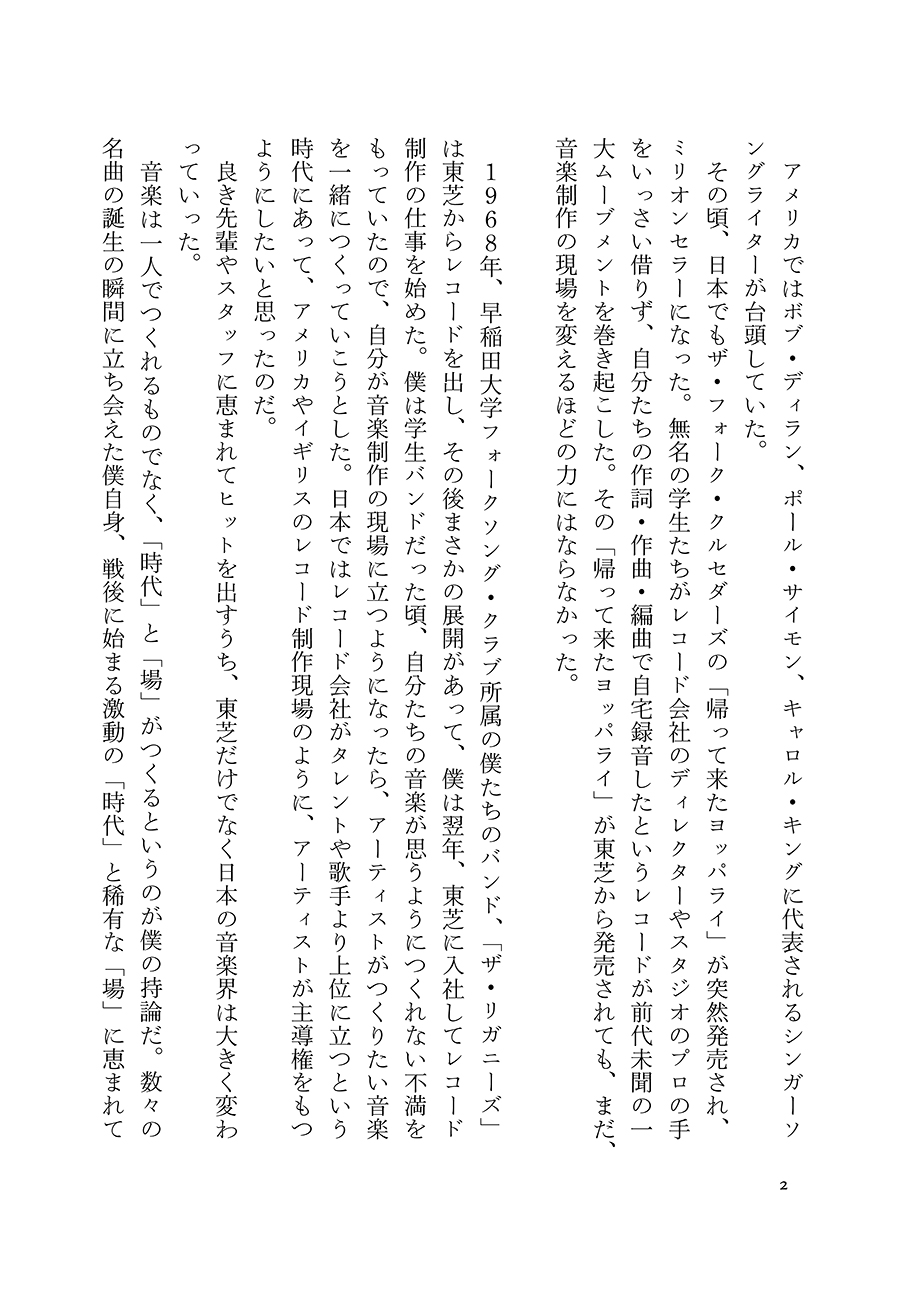 アメリカではボブ・ディラン、ポール・サイモン、キャロル・キングに代表されるシンガーソ
ングライターが台頭していた。
その頃、日本でもザ・フォーク・クルセダーズの「帰って来たヨッパライ」が突然発売され、
ミリオンセラーになった。無名の学生たちがレコード会社のディレクターやスタジオのプロの手
をいっさい借りず、自分たちの作詞・作曲・編曲で自宅録音したというレコードが前代未聞の一
大ムーブメントを巻き起こした。その「帰って来たヨッパライ」が東芝から発売されても、まだ、
音楽制作の現場を変えるほどの力にはならなかった。
1968年、早稲田大学フォークソング・クラブ所属の僕たちのバンド、「ザ・リガニーズ」
は東芝からレコードを出し、その後まさかの展開があって、僕は翌年、東芝に入社してレコード
制作の仕事を始めた。僕は学生バンドだった頃、自分たちの音楽が思うようにつくれない不満を
もっていたので、自分が音楽制作の現場に立つようになったら、アーティストがつくりたい音楽
を一緒につくっていこうとした。日本ではレコード会社がタレントや歌手より上位に立つという
時代にあって、アメリカやイギリスのレコード制作現場のように、アーティストが主導権をもつ
ようにしたいと思ったのだ。
良き先輩やスタッフに恵まれてヒットを出すうち、東芝だけでなく日本の音楽界は大きく変わ
っていった。
音楽は一人でつくれるものでなく、「時代」と「場」がつくるというのが僕の持論だ。数々の
名曲の誕生の瞬間に立ち会えた僕自身、戦後に始まる激動の「時代」と稀有な「場」に恵まれて
2